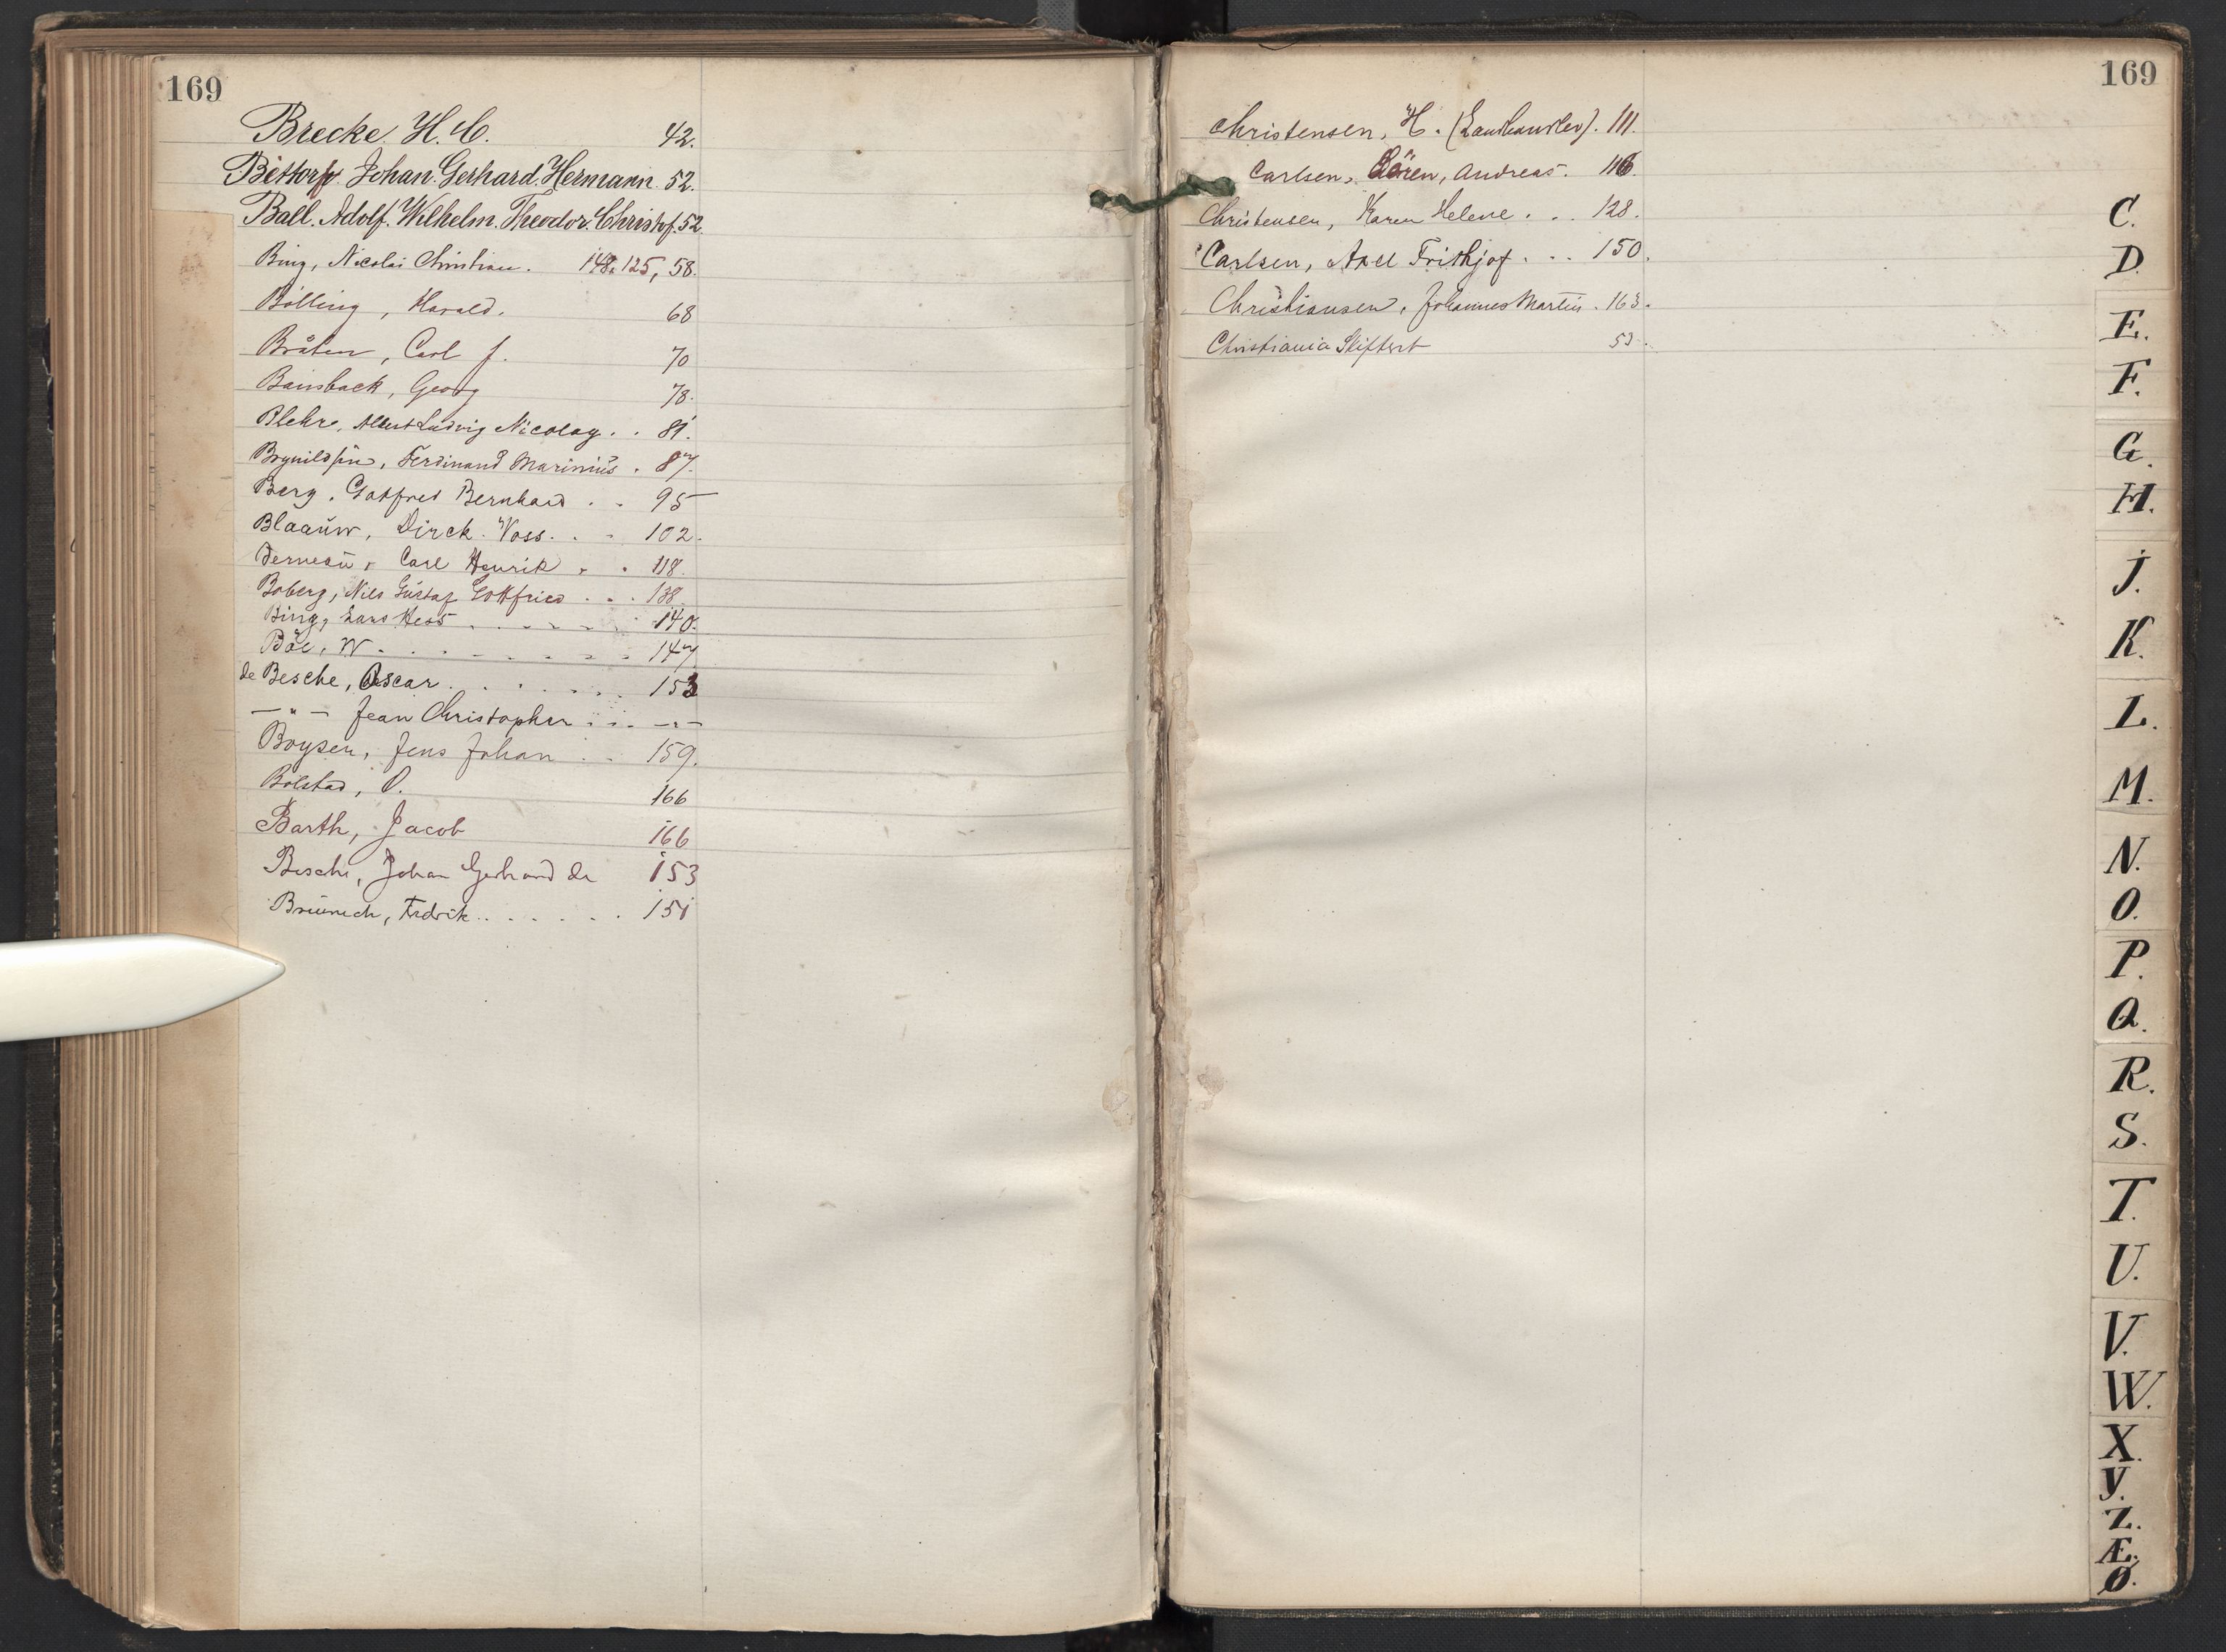 169
Brecke. H. C. 42.
Bettorf. Johan. Gerhard. Hermann. 52.
Ball. Adolf. Wilhelm. Theodor. Christof. 52.
Bing, Nicolai Christian. 148, 125, 58.
Bölling, Harald. 68
Bråten, Carl J. 70
Bainsback, Georg 78.
Blehr, Albert Ludvig Nicolay. . 81.
Brynildsen, Ferdinand Marinius . 87.
Berg. Gotfred Bernhard . . 95
Blaauw, Dirck. Voss. . . 102.
Carl Henrik . . 118.
Boberg, Nils Gustaf Gottfried . . . 138
Bing, Lars Hess . . . . . 140.
Böe, W . . . . . . . . 147
de Besche, Oscar . . . . . . . 153
— " — Jean Christopher . . . — " —
Boysen, Jens Johan . . 159.
Bolstad, O. 166
Barth, Jacob 166
Besche, Johan Gerhard de 153
Brünech, Fredrik . . . . . . 151
169
Christensen, H. (Landhandler). 111.
Carlsen, Sören, Andreas. 116.
Christensen, Karen Helene . . . 128.
Carlsen, Axel Frithjof . . . 150.
Christiansen, Johannes Martin . 163.
Christiania Skiftert 53.
C.
D.
E.
F.
G.
H.
J.
K.
L.
M.
N.
O.
P.
Q.
R.
S.
T.
U.
V.
W.
X.
Y.
Z.
Æ.
Ø.